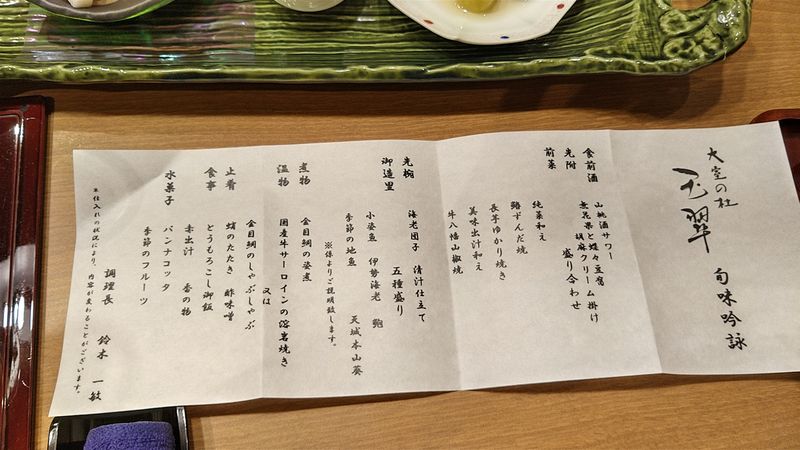 大室の杜
玉翠
旬味吟詠
食前酒　山桃酒サワー
先附　無花果と蝶々豆腐
胡麻クリーム掛け
前菜　盛り合わせ
純菜和え
鰆ずんだ焼
長芋ゆかり焼き
美味出汁和え
牛八幡山椒焼
先椀　海老団子　清汁仕立て
御造里　五種盛り
小姿魚　伊勢海老　鮑
季節の地魚　天城本山葵
※係よりご説明致します。
煮物　金目鯛の姿煮
温物　国産牛サーロインの溶岩焼き
又は
金目鯛のしゃぶしゃぶ
止肴　蛸のたたき　酢味噌
食事　とうもろこし御飯
赤出汁　香の物
水菓子　パンナコッタ
季節のフルーツ
調理長　鈴木　一敏
※仕入れの状況により、内容が変わることがございます。